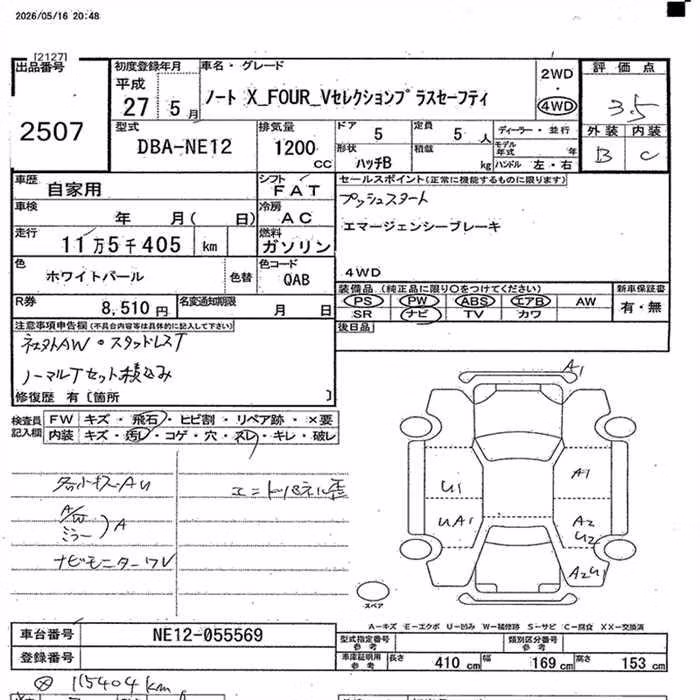 2026/05/16 20:48
[2127]
出品番号 2507
初度登録年月 平成 27 5月
車名・グレード
ノート X_FOUR_Vセレクションプラスセーフティ
2WD
4WD
評価点
3.5
外装 内装
B C
型式 DBA-NE12
排気量 1200 CC
ドア 5
定員 5 人
形状 ハッチB
積載 kg
ディーラー・並行
モデル年式 年
ハンドル 左・右
車歴 自家用
シフト FAT
車検 年 月( 日)
冷房 AC
走行 11万5千405 km
燃料 ガソリン
色 ホワイトパール 色替
色コード QAB
R券 8,510円
名変通知期限 月 日
セールスポイント(正常に機能するものに限ります)
プッシュスタート
エマージェンシーブレーキ
4WD
装備品(純正品に限り○をつけてください)
新車保証書
PS PW ABS エアB AW
SR ナビ TV カワ
有・無
後日品
注意事項申告欄(不具合内容等は具体的に記入して下さい)
社外AW・スタッドレスT
ノーマルTセット積込み
修復歴 有〔箇所 〕
検査員記入欄
FW キズ・飛石・ヒビ割・リペア跡・×要
内装 キズ・汚レ・コゲ・穴・ズレ・キレ・破レ
各小キズ・AU
A/W
ミラー
)A
ナビモニターワレ
A1
U1
UA1
A1
A2
U2
A2U1
スペア
A-キズ E-エクボ U-凹み W-補修跡 S-サビ C-腐食 XX-交換済
車台番号 NE12-055569
登録番号
型式指定番号 参考
類別区分番号 参考
車庫証明用 参考
長さ 410 cm
幅 169 cm
高さ 153 cm
115404km